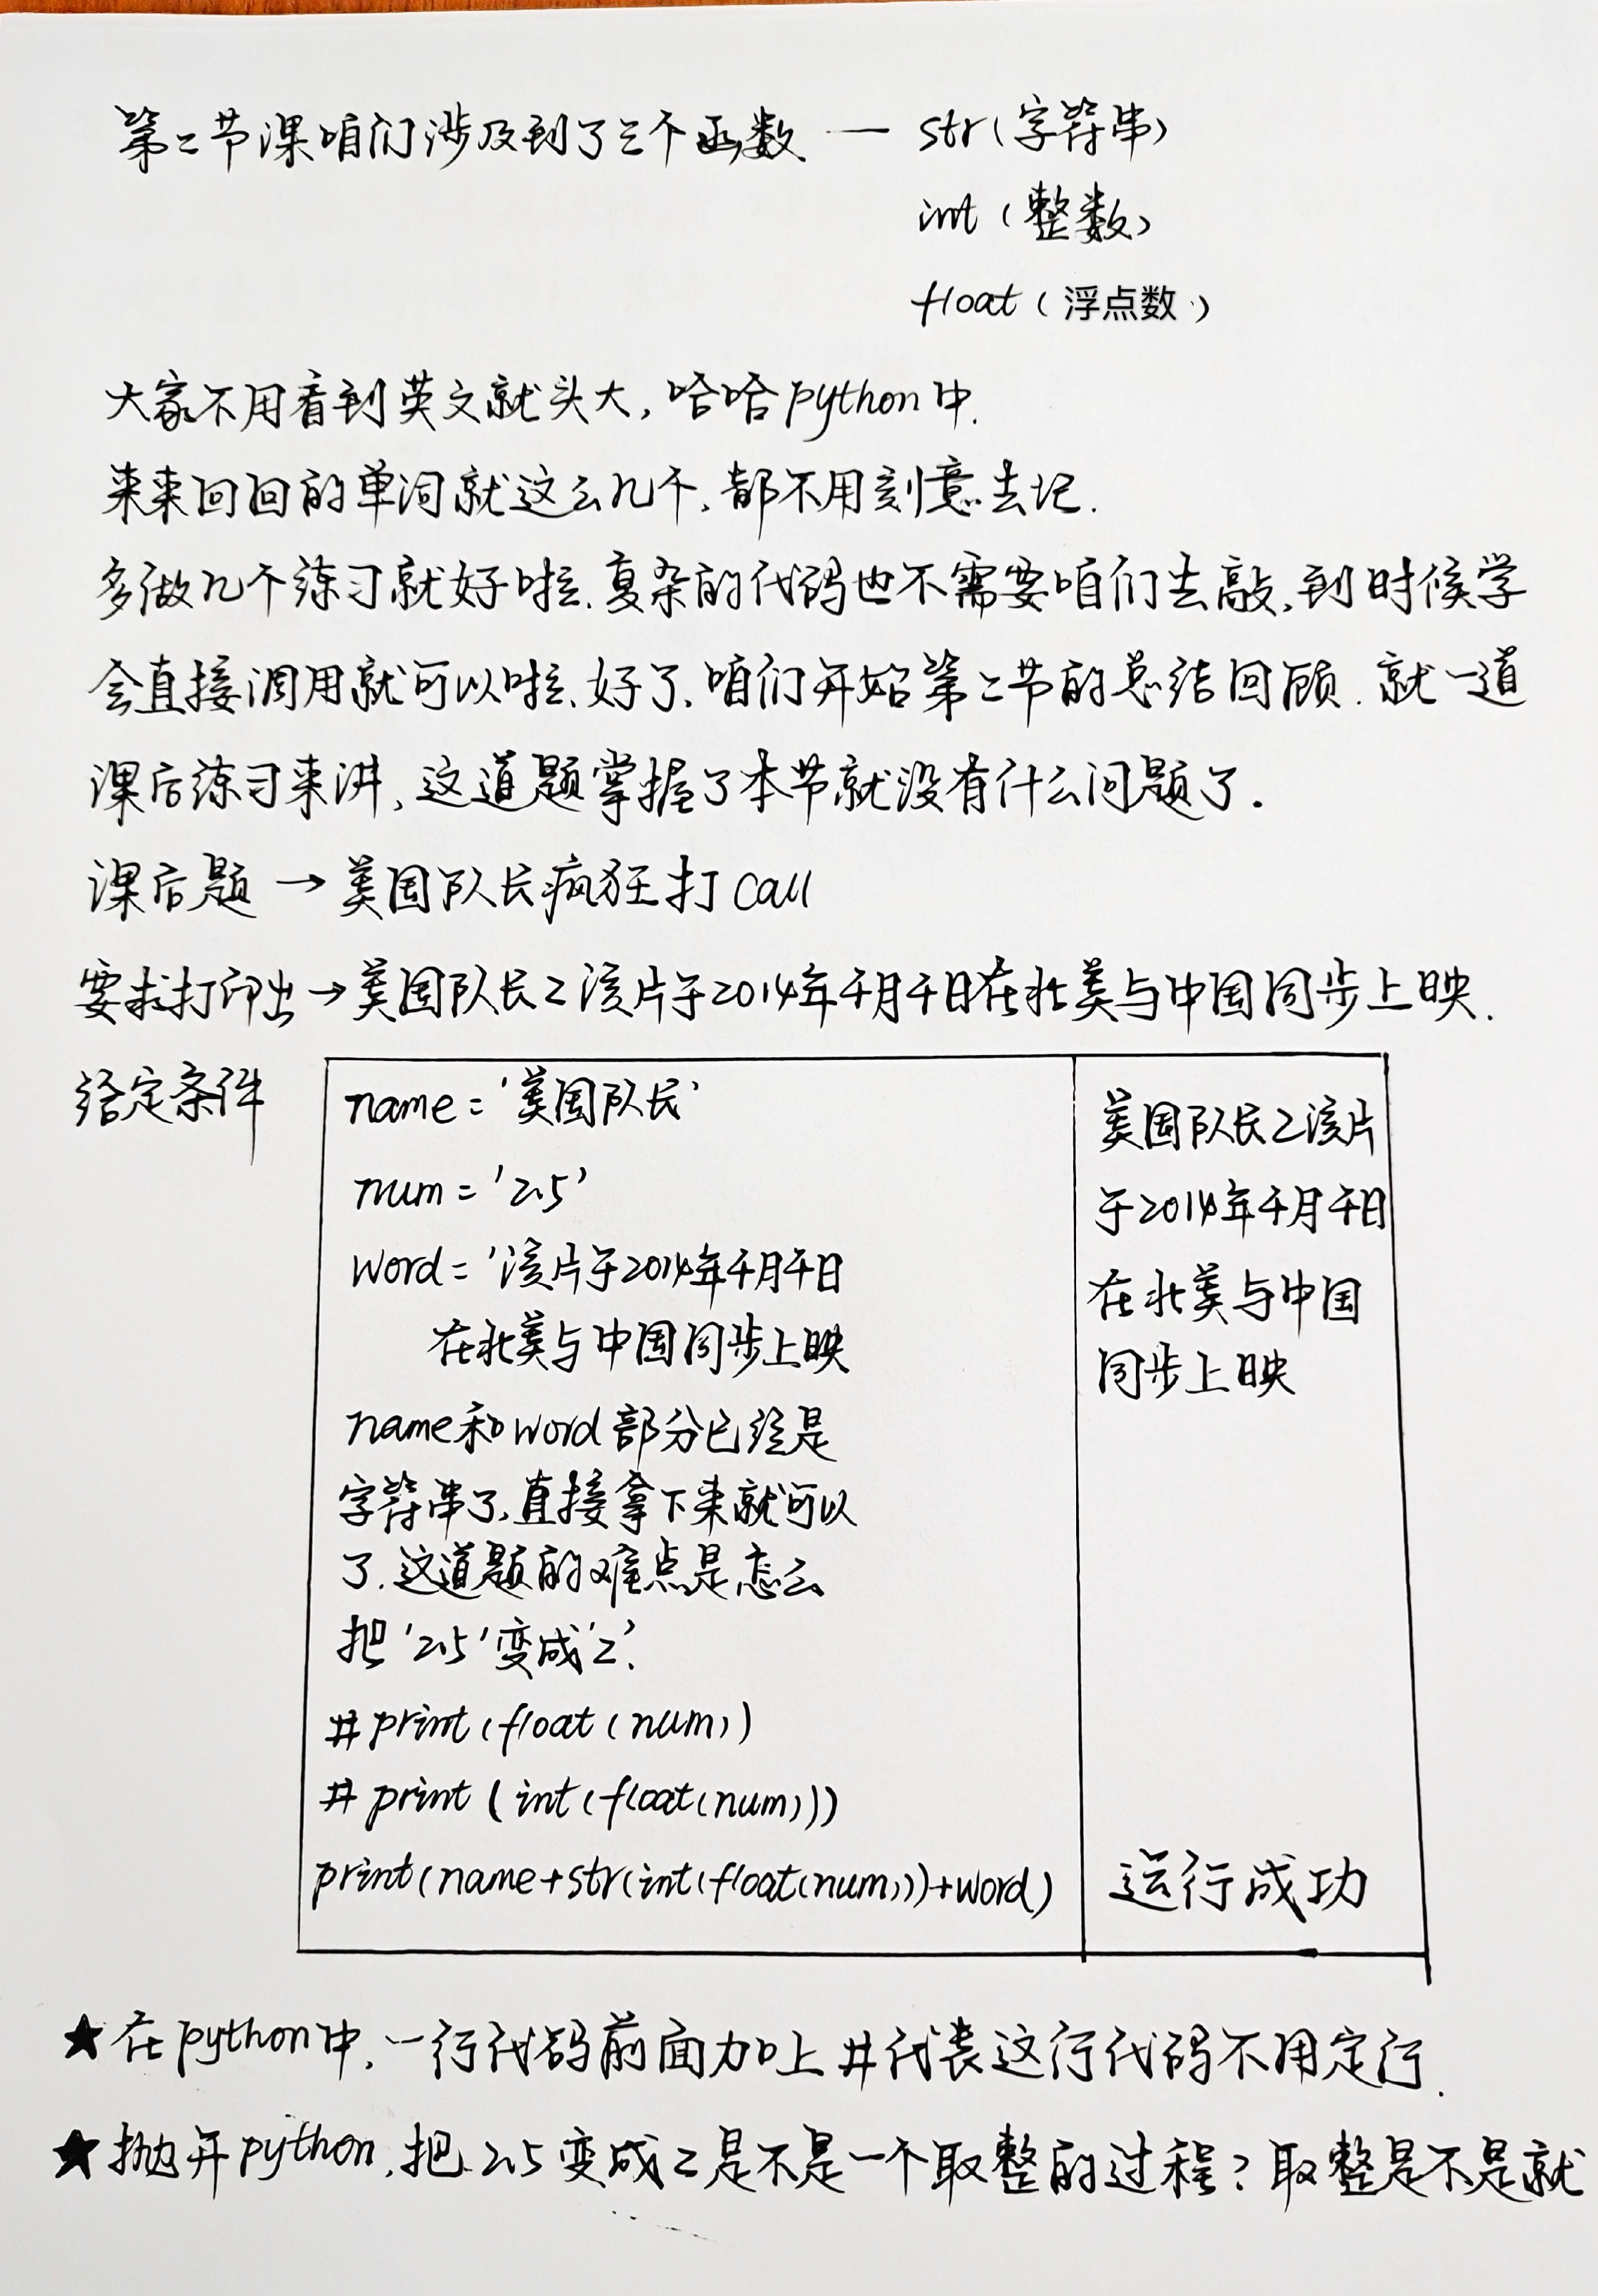 第二节课咱们涉及到了三个函数 — str(字符串)
int(整数)
float(浮点数)
大家不用看到英文就头大,哈哈python中.
来来回回的单词就这么几个,都不用刻意去记.
多做几个练习就好啦.复杂的代码也不需要咱们去敲,到时候学
会直接调用就可以啦.好了,咱们开始第二节的总结回顾.就一道
课后练习来讲,这道题掌握了本节就没有什么问题了.
课后题→美国队长疯狂打call
要求打印出→美国队长2该片于2014年4月4日在北美与中国同步上映.
给定条件
name='美国队长'
num='2.5'
word='该片于2014年4月4日
在北美与中国同步上映
name和word部分已经是
字符串了,直接拿下来就可以
了.这道题的难点是怎么
把'2.5'变成'2'.
#print(float(num))
#print(int(float(num)))
print(name+str(int(float(num)))+word)
美国队长2该片
于2014年4月4日
在北美与中国
同步上映
运行成功
★在python中,一行代码前面加上#代表这行代码不用运行.
★抛开python,把2.5变成2是不是一个取整的过程?取整是不是就